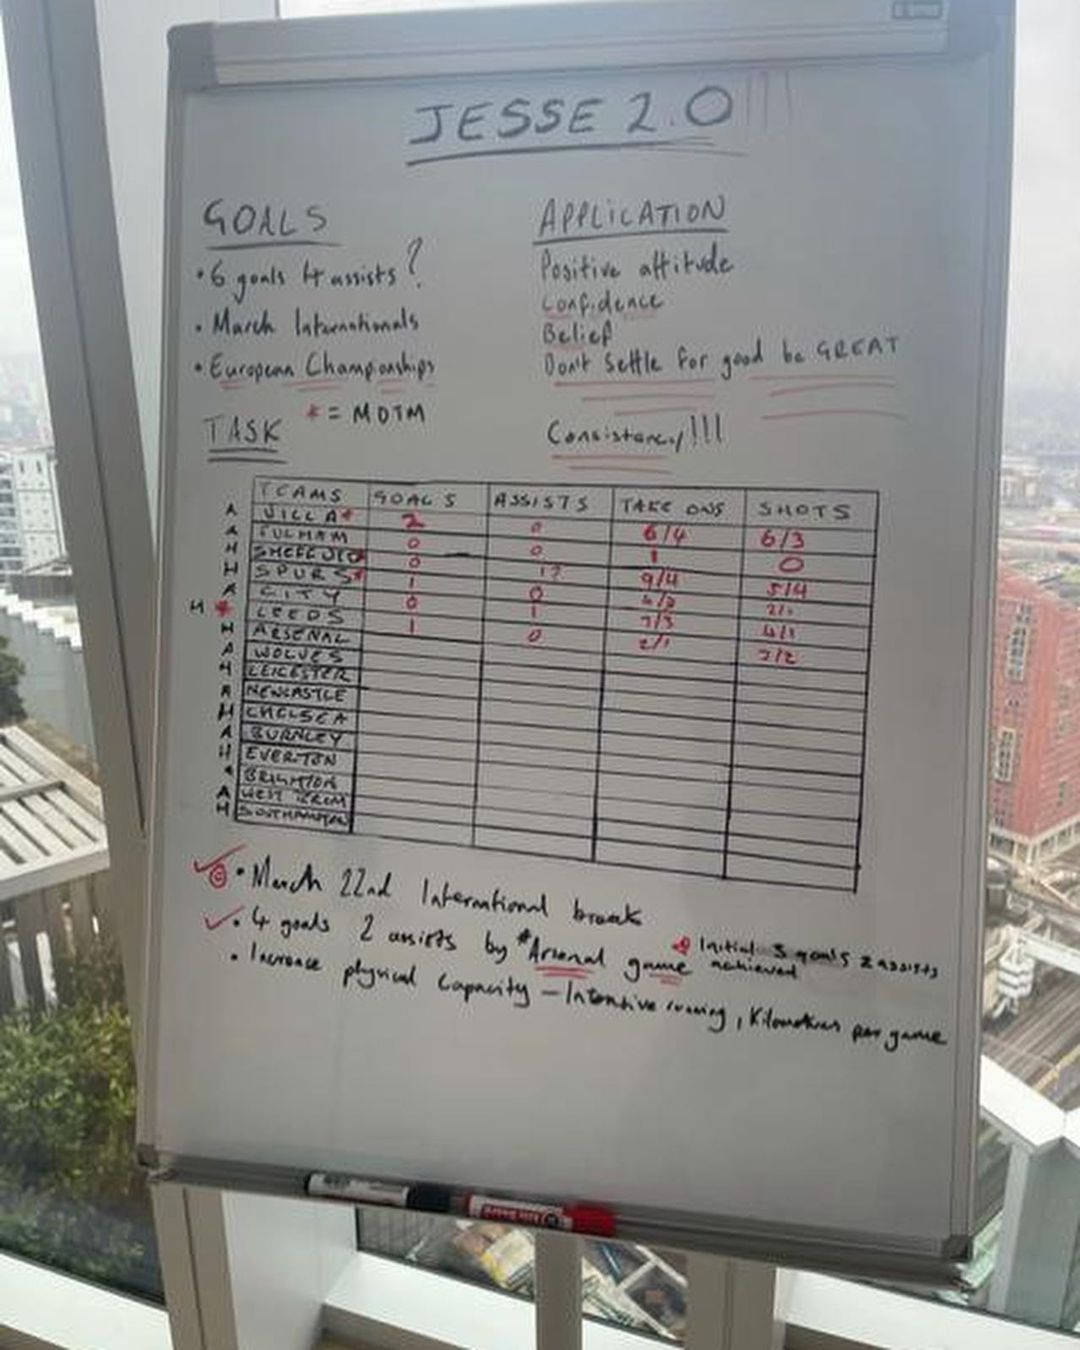 JESSE 2.0!!!
GOALS
• 6 goals 4 assists?
• March Internationals
• European Championships
* = MOTM
APPLICATION
Positive attitude
Confidence
Belief
Don't Settle for good be GREAT
Consistency!!!
TASK
TEAMS GOALS ASSISTS TAKE ONS SHOTS
A VILLA* 2 0 6/4 6/3
A FULHAM 0 0 1 0
H 0 1? 9/4 5/4
H SPURS* 1 0
A CITY 0 1 4/1
H * LEEDS 1 0 2/1
H ARSENAL
A WOLVES
H LEICESTER
A NEWCASTLE
H CHELSEA
A BURNLEY
H EVERTON
BRIGHTON
A WEST BROM
H SOUTHAMPTON
• March 22nd International break
• 4 goals 2 assists by *Arsenal game
Initial 3 goals 2 assists
achieved
• Increase physical capacity – Intensive running, Kilometres per game